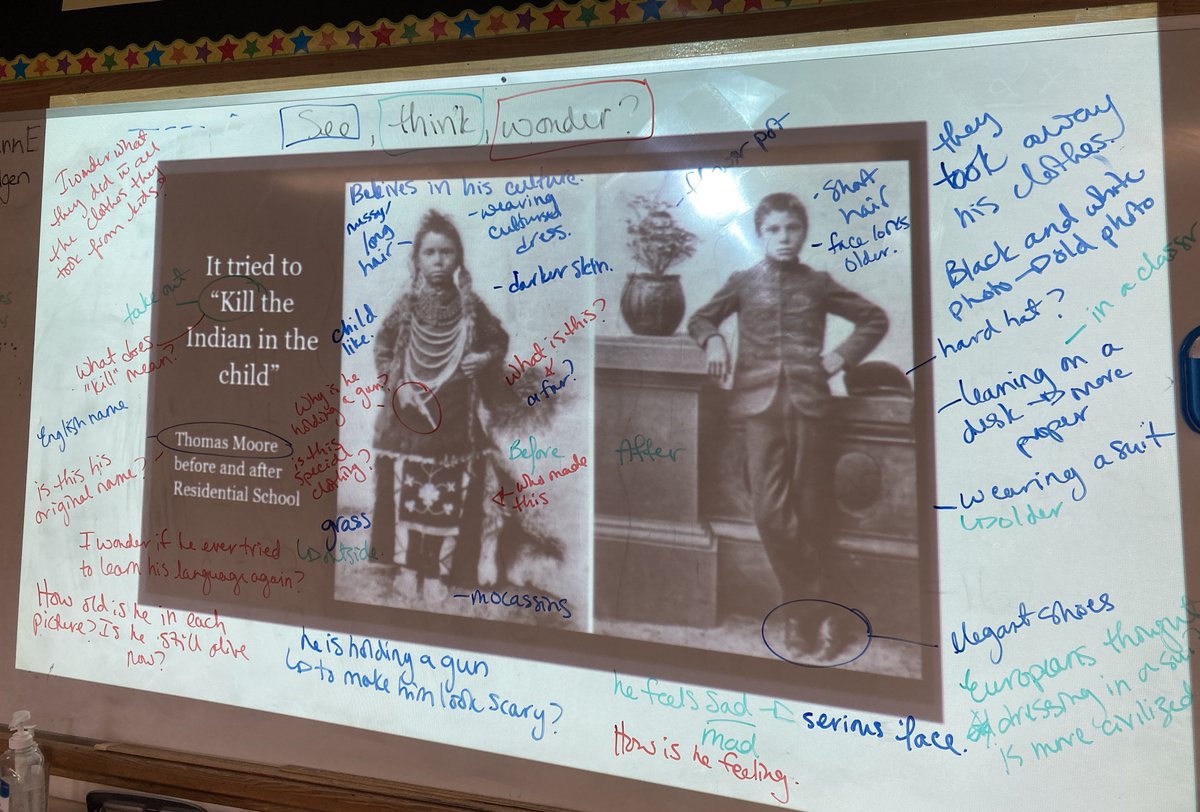 See, think, wonder?
annE
gen
I wonder what
they did w all
the clothes they
took from kids?
take out
What does
"kill" mean?
English name
is this his
original name?
I wonder if he ever tried
to learn his language again?
How old is he in each
picture? Is he still alive
now?
It tried to
"Kill the
Indian in the
child"
Thomas Moore
before and after
Residential School
Beleives in his culture.
messy/
long
hair
- wearing
cultured
dress.
- darker skin.
child
like.
What is this?
&
a fur?
Why is he
holding a gun?
is this
special
clothing?
Before
who made
this
grass
↳ outside.
- mocassins
he is holding a gun
↳ to make him look scary?
flower pot
- short
hair
- face looks
older.
After
he feels sad → serious face.
mad
How is he feeling.
they
took away
his clothes.
Black and white
photo → old photo
- in a classr
hard hat?
- leaning on a
desk → more
proper
- wearing a suit
↳ older
elegant shoes
Europeans thought
dressing in a suit
is more civilized